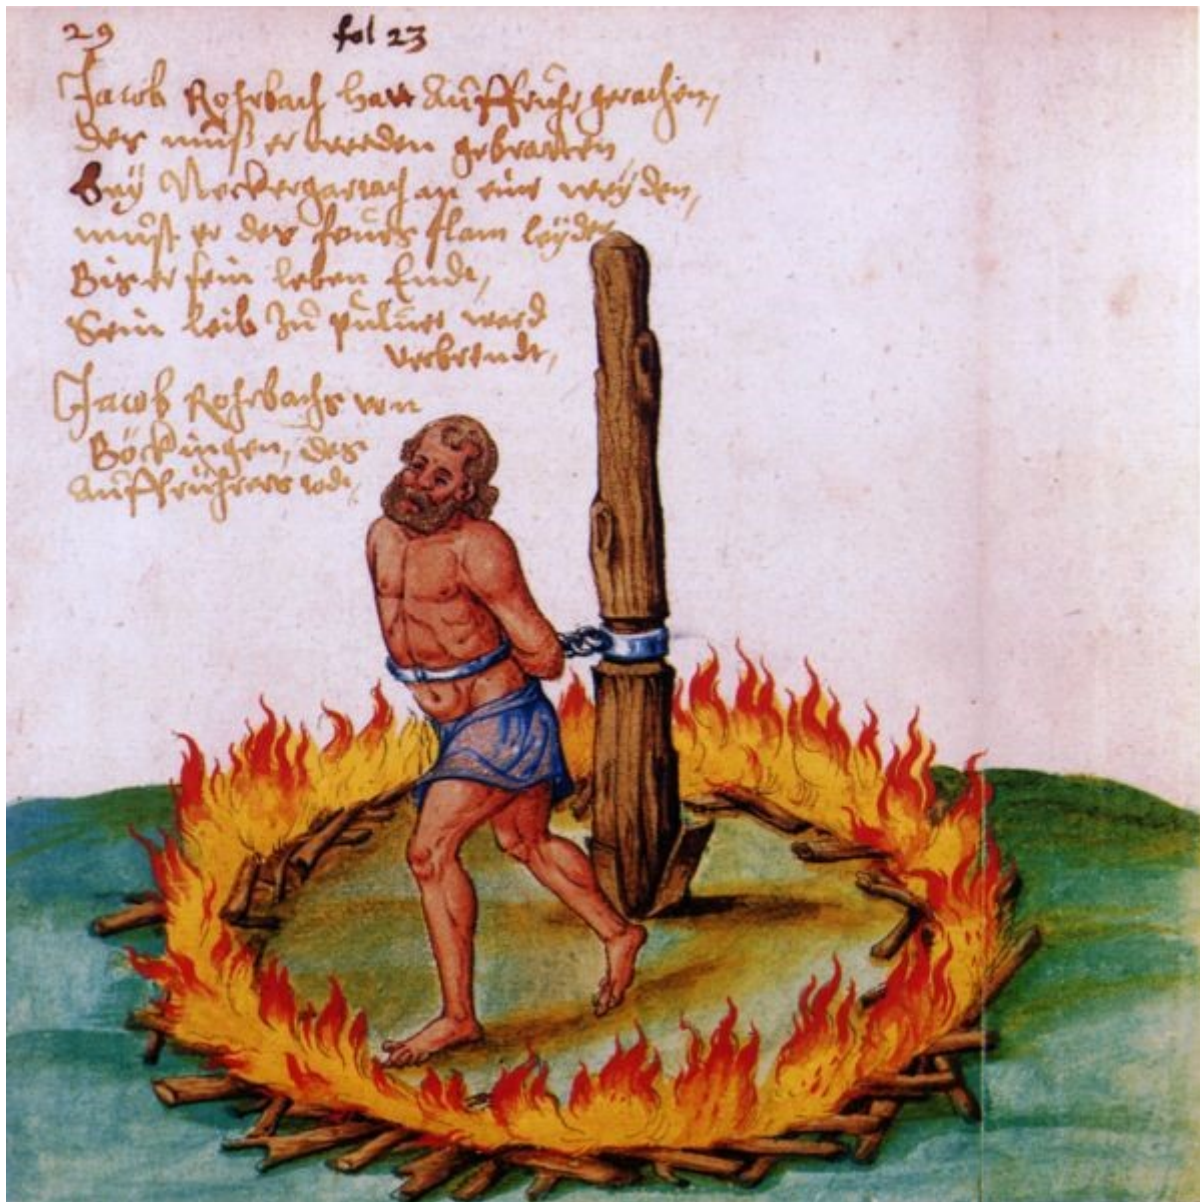 29
fol 23
Jacob Rohrbach hatt Auffruhr gerathen,
des muß er werden gebratten
Bey Neckergartach an eine weyden,
must er des feuers flam leyden
Biß er sein leben Endt,
Sein leib zu pulver ward
verbrendt,
Jacob Rohrbachs von
Böckingen, des
Auffrührers todt,